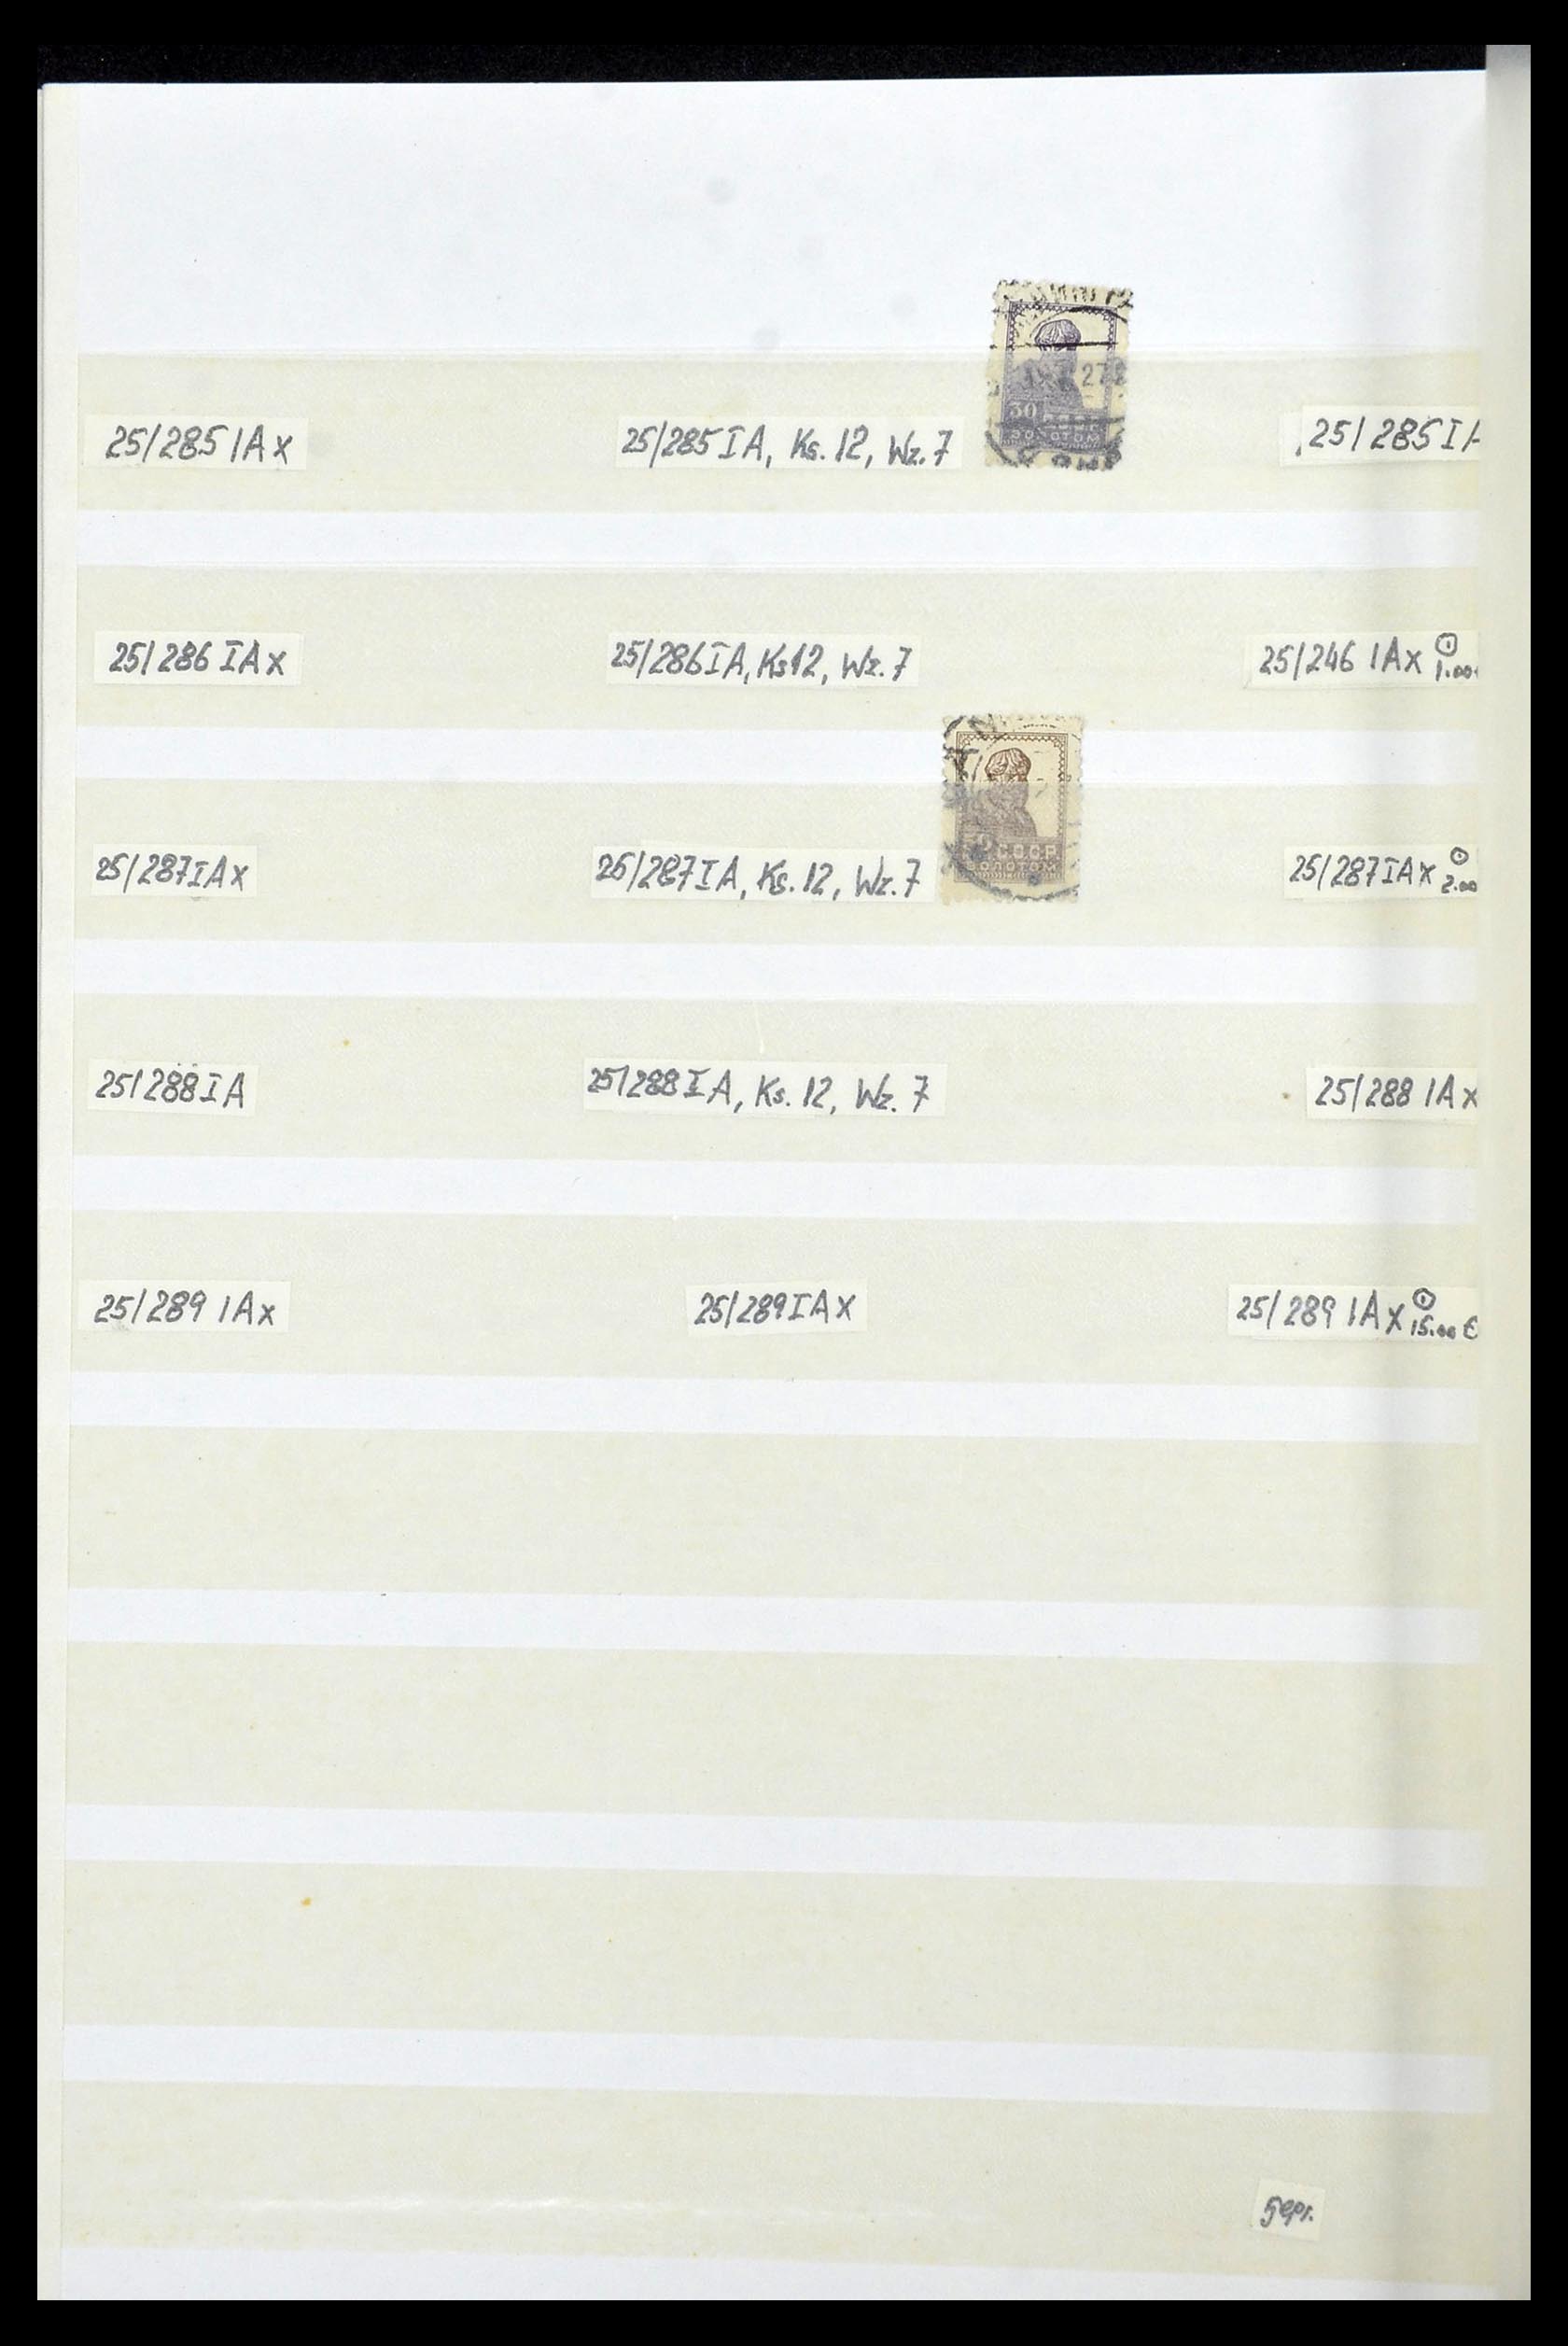 25/285 IA x
25/285 IA, Ks. 12, Wz. 7
30 С.С.С.Р.
ЗОЛОТОМ
25/285 IA
25/286 IA x
25/286 IA, Ks 12, Wz. 7
25/246 IA x
1.00
25/287 IA x
25/287 IA, Ks. 12, Wz. 7
50 С.С.С.Р.
ЗОЛОТОМ
25/287 IA x
2.00
25/288 IA
25/288 IA, Ks. 12, Wz. 7
25/288 IA x
25/289 IA x
25/289 IA x
25/289 IA x
15.00 €
gepr.